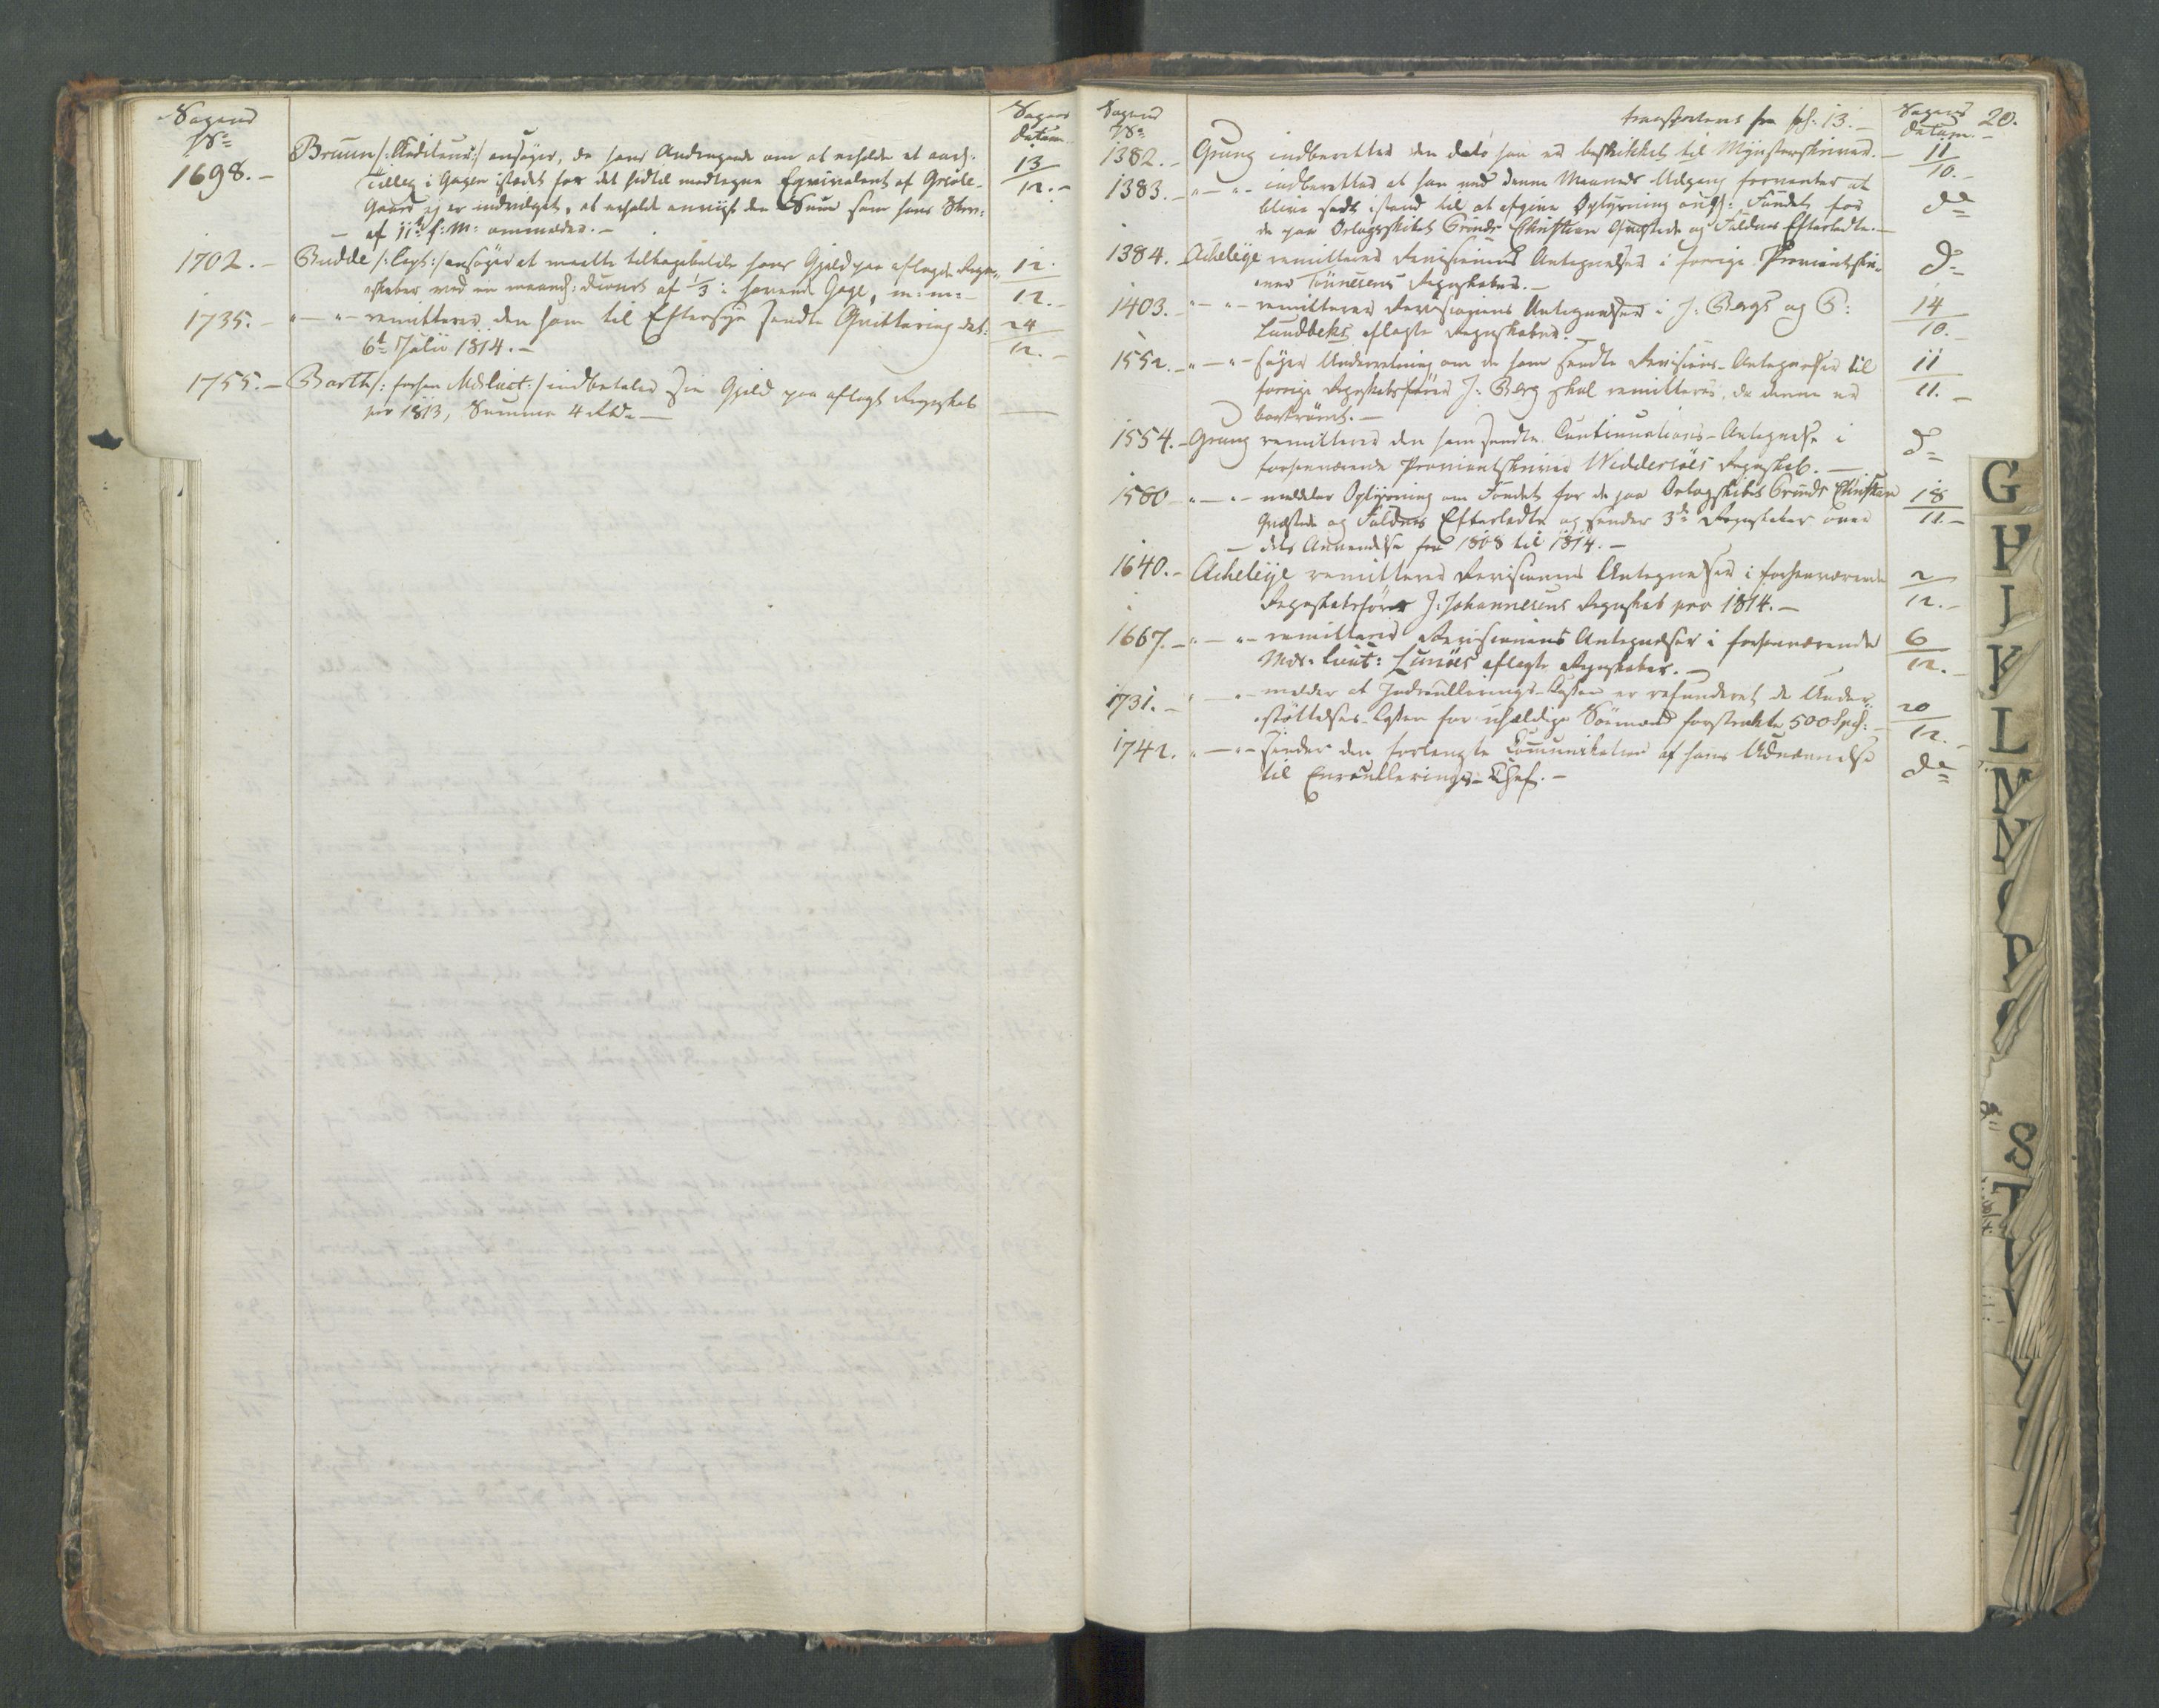 Sagens
No
Sagens
datum
1698. - Bruun /: Auditeur :/ ansøger, da hans Andragende om at erholde et aarl:
Tillæg i Gagen istædet for det hidtil modtagne Eqvivalent af
Gaard ej er indvilget, at erholde anviist den Sum som hans
af 11te f: M: ommelder. -
13/12. -
1702. - Budde /: Capt: :/ ansøger at maatte tilbagebetale hans Gjæld paa aflagde Regn-
skaber ved en maanedl: af 1/3 i havende Gage, m: m: -
12/12. -
1735. - " - " - remitterer den ham til Eftersyn sendte Qvittering dat:
6te Julii 1814. -
24/12. -
1755. - Barth /: forhen Mdsluct: :/ indbetaler sin Gjæld paa aflagt Regnskab
pro 1813, Summa 4 -
Sagens
No
transporteret fra pag. 13. -
Sagens
Datum. -
20.
1382. - Grung indberetter den dato han er beskikket til Mynsterskriver. -
11/10. -
1383. - " - " - indberetter at han ved denne Maaneds Udgang forventer at
blive sadt istand til at afgive Oplysning Fondet for
de paa Orlogsskibet Prinds Christian Qvæstede og Faldnes Efterladte. -
do
1384. - Acheleye remitterer Revisionens Antegnelser i forrige Proviantskri-
ver Tönnesens Regnskaber. -
do
1403. - " - " - remitterer Revisionens Antegnelser i J: Bergs og P:
Lundbeks aflagte Regnskaber. -
14/10. -
1552. - " - " - søger Underretning om de ham sendte Revisions-Antegnelser til
forrige Regnskabsfører J: Berg skal remitteres, da denne er
bortrömt. -
11/11. -
1554. - Grung remitterer den ham sendte Continuations-Antegnelse i
forhenværende Proviantskriver Widderöes Regnskab. -
do
1560 - " - " - meddeler Oplysning om Fondet for de paa Orlogskibet Prinds Christian
Qvæstede og Faldnes Efterladte og sender 3de Regnskaber over
dets Anvendelse fra 1808 til 1814. -
18/11. -
1640. - Acheleye remitterer Revisionens Antegnelser i forhenværende
Regnskabsfører J: Johannesens Regnskab pro 1814. -
2/12. -
1667. - " - " - remitterer Revisionens Antegnelser i forhenværende
Mds. Luut: Lunöes aflagte Regnskaber. -
6/12. -
1731. - " - " - melder at Indroullerings-Cassen er refunderet de Under-
støttelses-Cassen for uheldige Söemænd forstrakte 500 Spd: -
20/12. -
1742. " - " - sender den forlangte Communikation af hans Udnævnelse
til Enroullerings-Chef. -
do
G
H
I
K
L
M
N
O
P
S
T